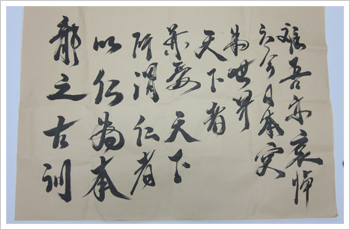 雖吾亦哀悼
之今日本突
為世界
天下者
兼愛天下
所謂仁者
以仁為本
龍之古訓